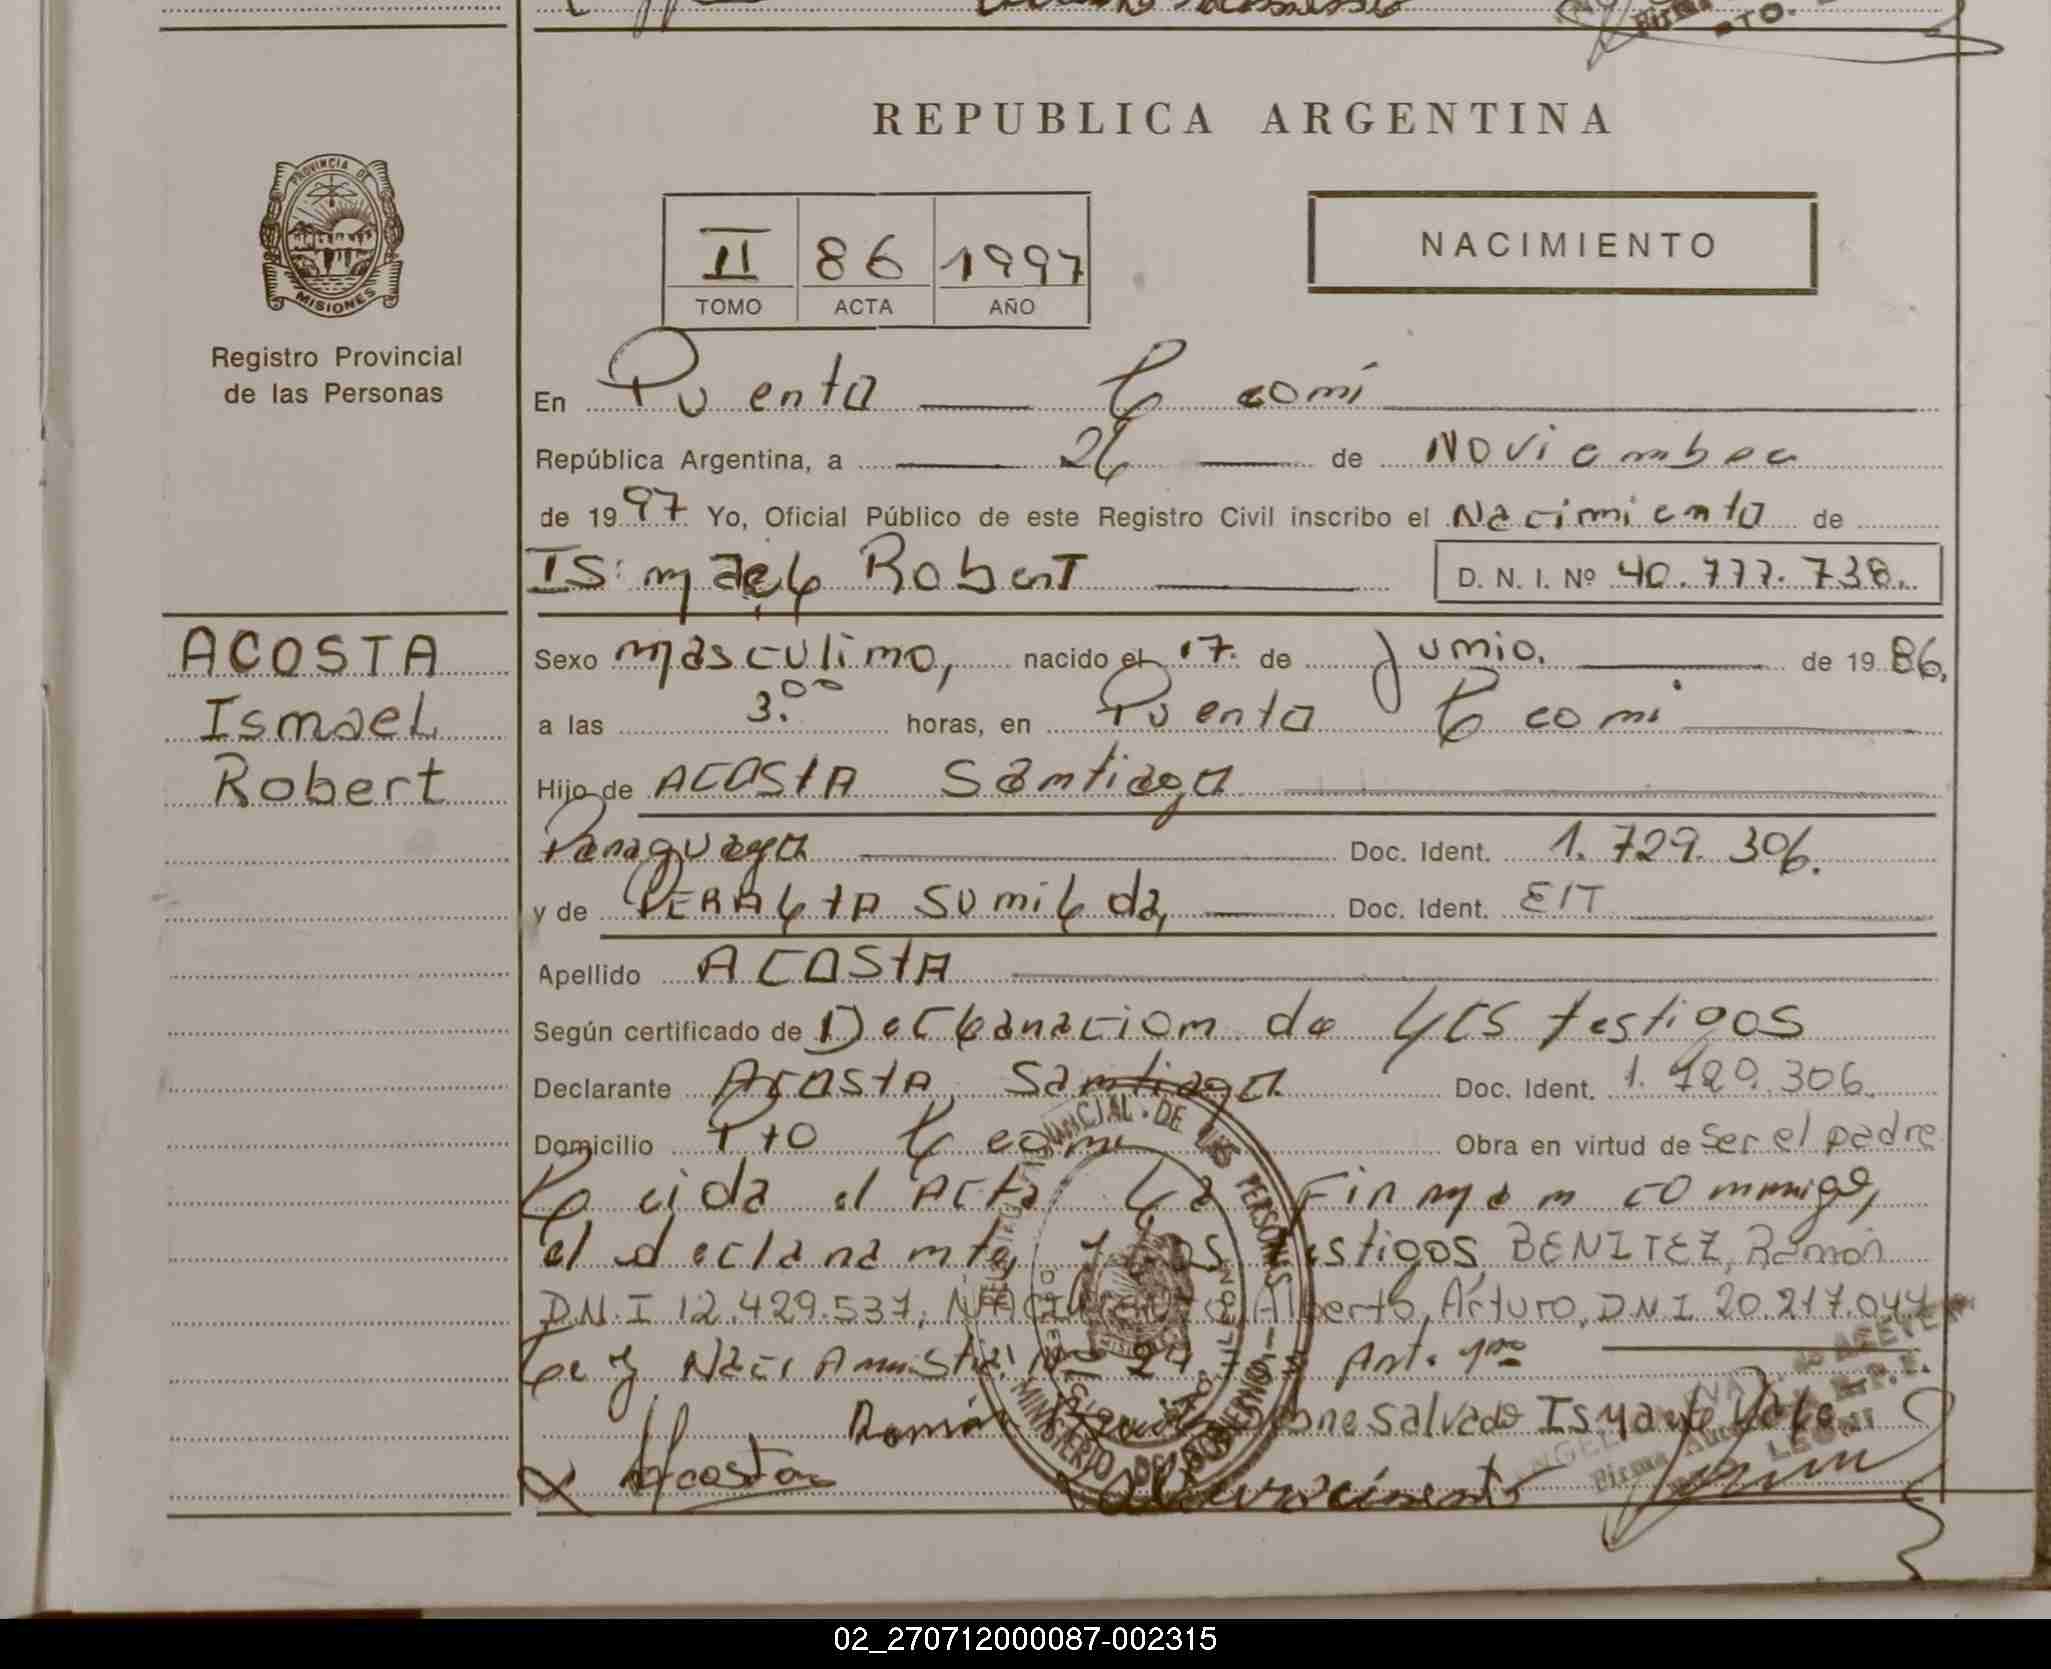 REPUBLICA ARGENTINA
PROVINCIA DE
MISIONES
Registro Provincial
de las Personas
NACIMIENTO
II 86 1997
TOMO ACTA AÑO
En Puerto Leoni
República Argentina, a 26 de Noviembre
de 1997 Yo, Oficial Público de este Registro Civil inscribo el Nacimiento de
Ismael Robert D. N. I. Nº 40.777.738.
ACOSTA
Ismael
Robert
Sexo masculino, nacido el 17. de Junio. de 1986.
a las 3.00 horas, en Puerto Leoni
Hijo de ACOSTA Santiago
Paraguayo Doc. Ident. 1.729.306.
y de PERALTA Sunilda, Doc. Ident. EIT
Apellido ACOSTA
Según certificado de Declaracion de los testigos
Declarante Acosta, Santiago Doc. Ident. 306
Domicilio Pto Leoni Obra en virtud de Ser el padre
Leida el Acta La Firman conmigo,
el declarante, y los testigos BENITEZ, Ramón
D.N.I 12.429.537, Alberto, Arturo, D.N.I 20.217.044
Ley Nac. Amnistia Art. 1ro
Ramón Salvado Ismael Vale
Acosta
MINISTERIO DE GOBIERNO
02_270712000087-002315